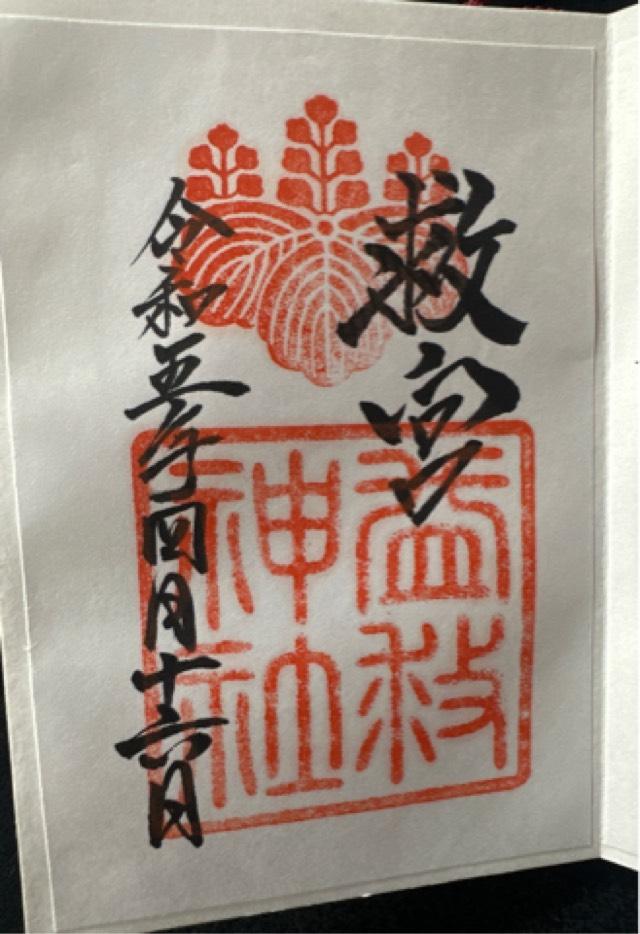 救宮
益救
神社
令和五年四月十六日